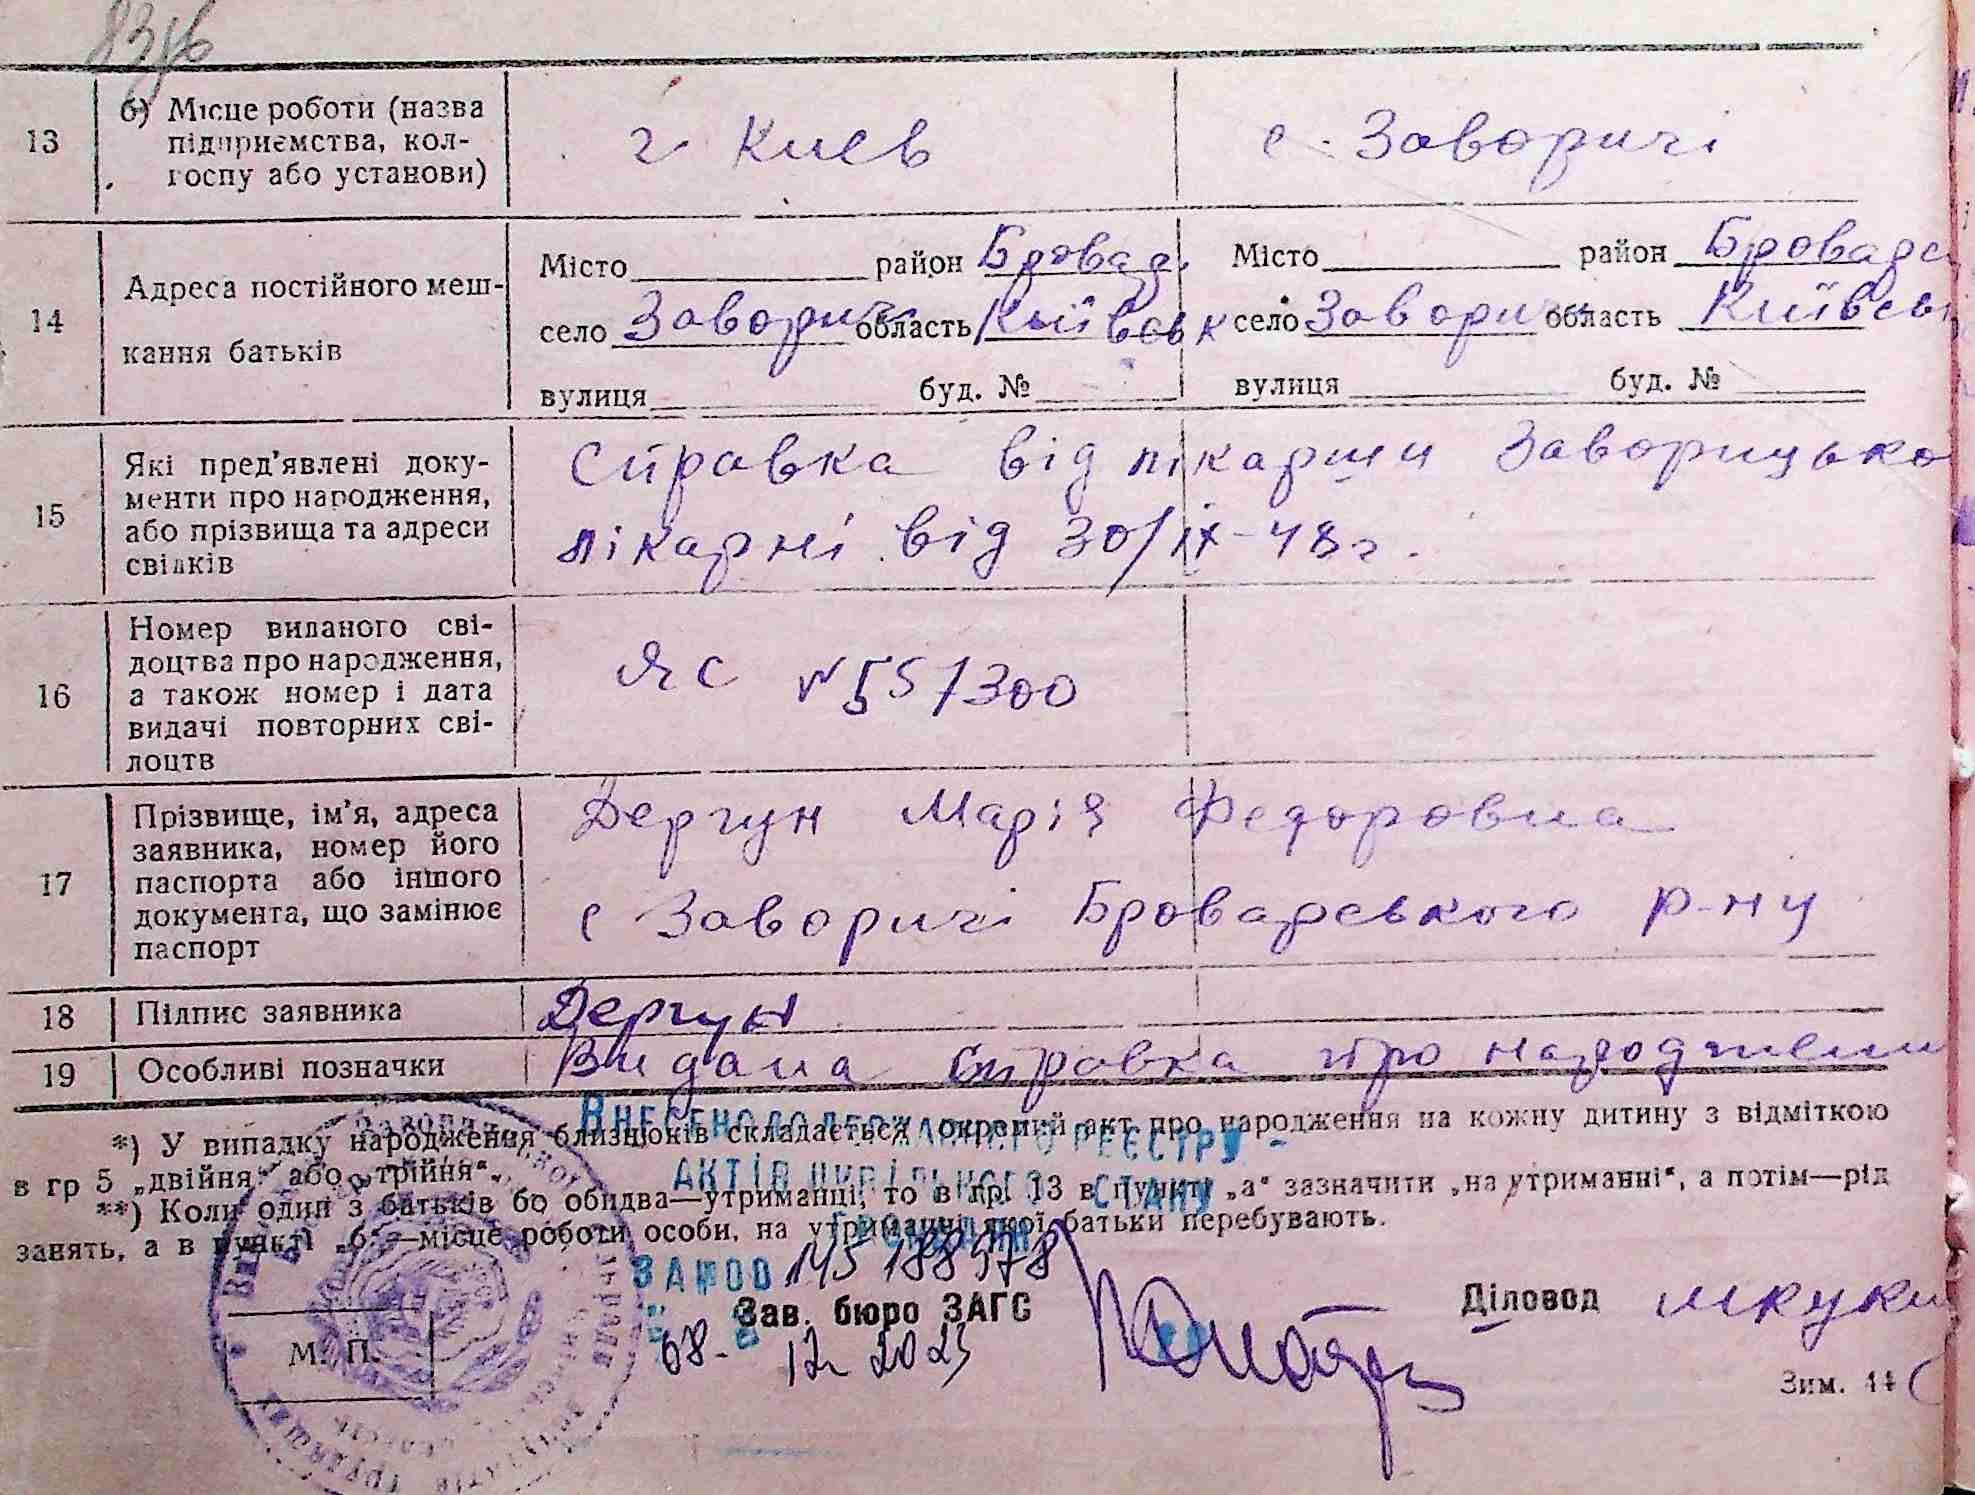 13
б) Місце роботи (назва
підприємства, кол-
госпу або установи)
г Киев
с. Заворичі
14
Адреса постійного меш-
кання батьків
Місто район Бровар.
село Заворичі область Київськ
вулиця буд. №
Місто район Броварс
село Заворичі область Київськ
вулиця буд. №
15
Які пред'явлені доку-
менти про народження,
або прізвища та адреси
свідків
Справка від лікарши Заворицько
лікарні від 30/ІХ-48г.
16
Номер виданого сві-
доцтва про народження,
а також номер і дата
видачі повторних сві-
доцтв
ЯС №551300
17
Прізвище, ім'я, адреса
заявника, номер його
паспорта або іншого
документа, що замінює
паспорт
Дергун Марія Федоровна
с Заворичі Броварського р-ну
18
Підпис заявника
Дергун
19
Особливі позначки
Видана справка про народження
*) У випадку народження близнюків складається окремий акт про народження на кожну дитину з відміткою
в гр 5 „двійня“ або „трійня“.
**) Коли один з батьків бо обидва—утриманці, то в гр. 13 в пункті „а“ зазначити „на утриманні“, а потім—рід
занять, а в пункті „б“—місце роботи особи, на утриманні якої батьки перебувають.
ВНЕСЕНО ДО ДЕРЖАВНОГО РЕЄСТРУ
АКТІВ ЦИВІЛЬНОГО СТАНУ
ГРОМАДЯН
ЗА №00 145 188978
08. 12 2023
Зав. бюро ЗАГС
Діловод
М. П.
Зим.